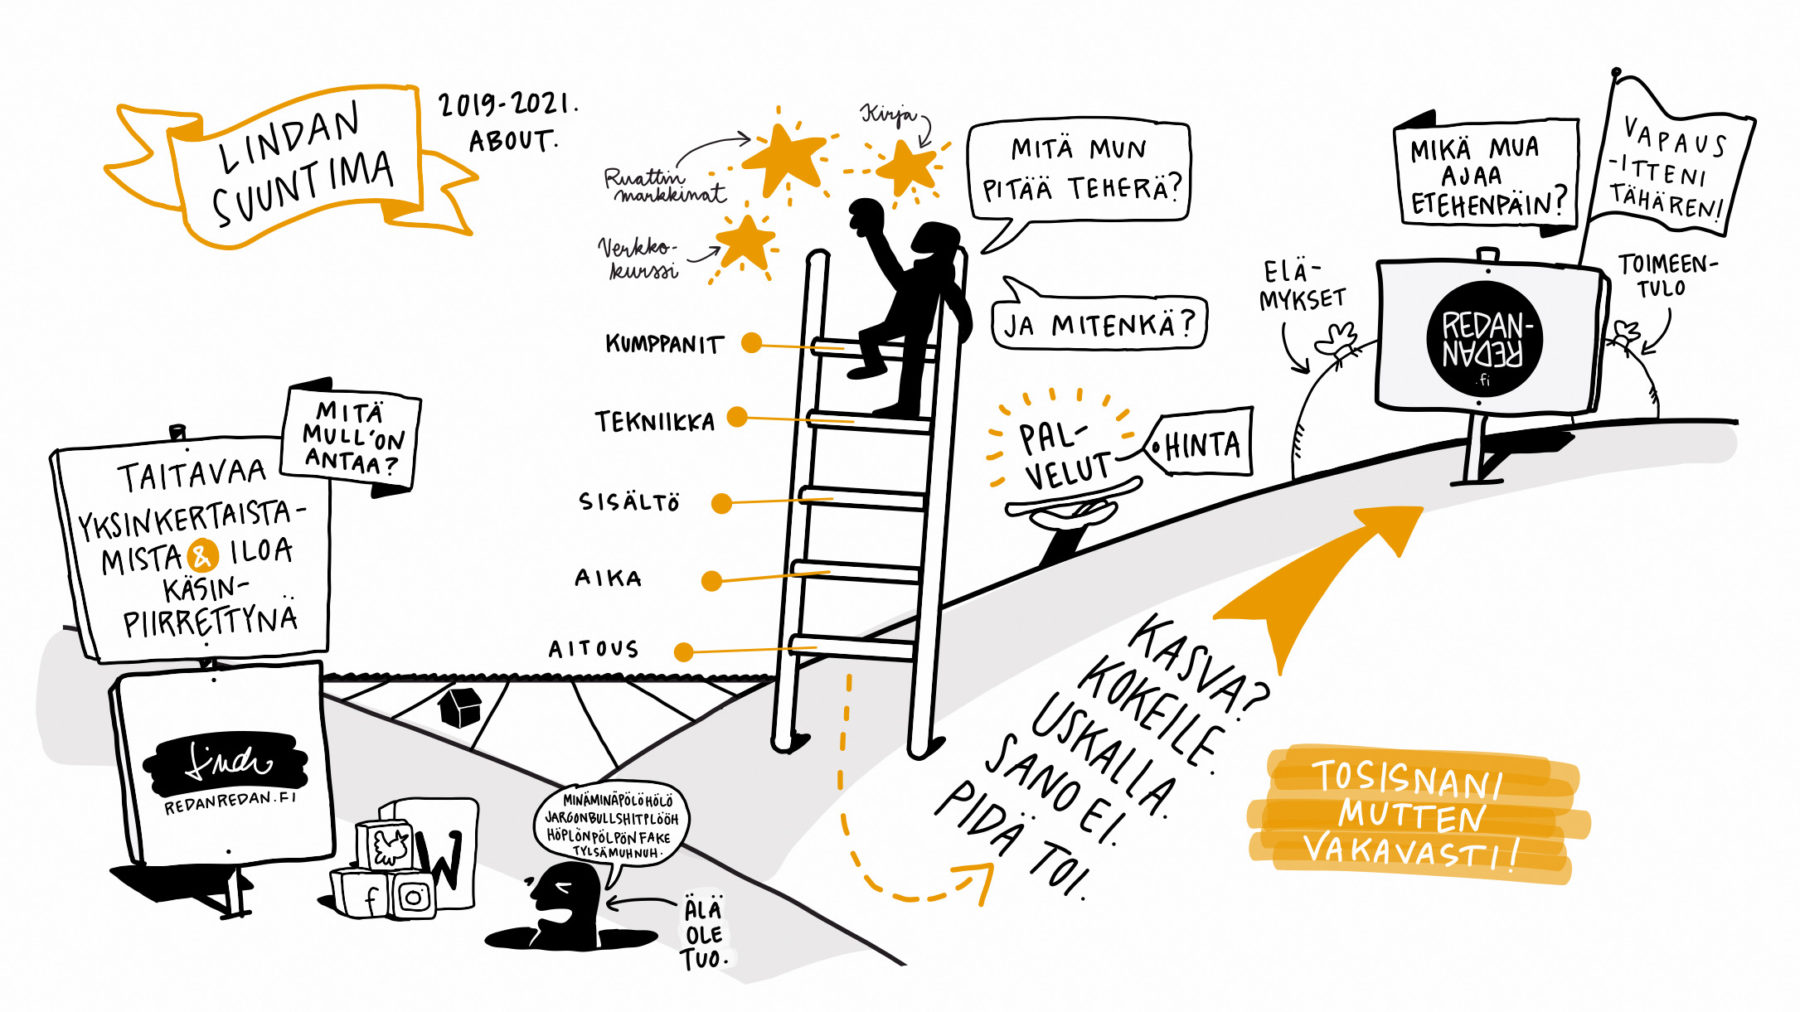 LINDAN
SUUNTIMA
2019-2021.
ABOUT.
Ruattin
markkinat
Kirja
Verkko-
kurssi
MITÄ MUN
PITÄÄ TEHERÄ?
JA MITENKÄ?
KUMPPANIT
TEKNIIKKA
SISÄLTÖ
AIKA
AITOUS
MIKÄ MUA
AJAA
ETEHENPÄIN?
VAPAUS
-ITTENI
TÄHÄREN!
ELÄ-
MYKSET
TOIMEEN-
TULO
REDAN-
REDAN
.fi
PAL-
VELUT
HINTA
MITÄ
MULL'ON
ANTAA?
TAITAVAA
YKSINKERTAISTA-
MISTA & ILOA
KÄSIN-
PIIRRETTYNÄ
Linda
REDANREDAN.FI
W
f
MINÄMINÄPÖLÖHÖLÖ
JARGONBULLSHITPLÖÖH
HÖPLÖNPÖLPÖNFAKE
TYLSÄMUHNUH.
ÄLÄ
OLE
TUO.
KASVA?
KOKEILE.
USKALLA.
SANO EI.
PIDÄ TOI.
TOSISNANI
MUTTEN
VAKAVASTI!